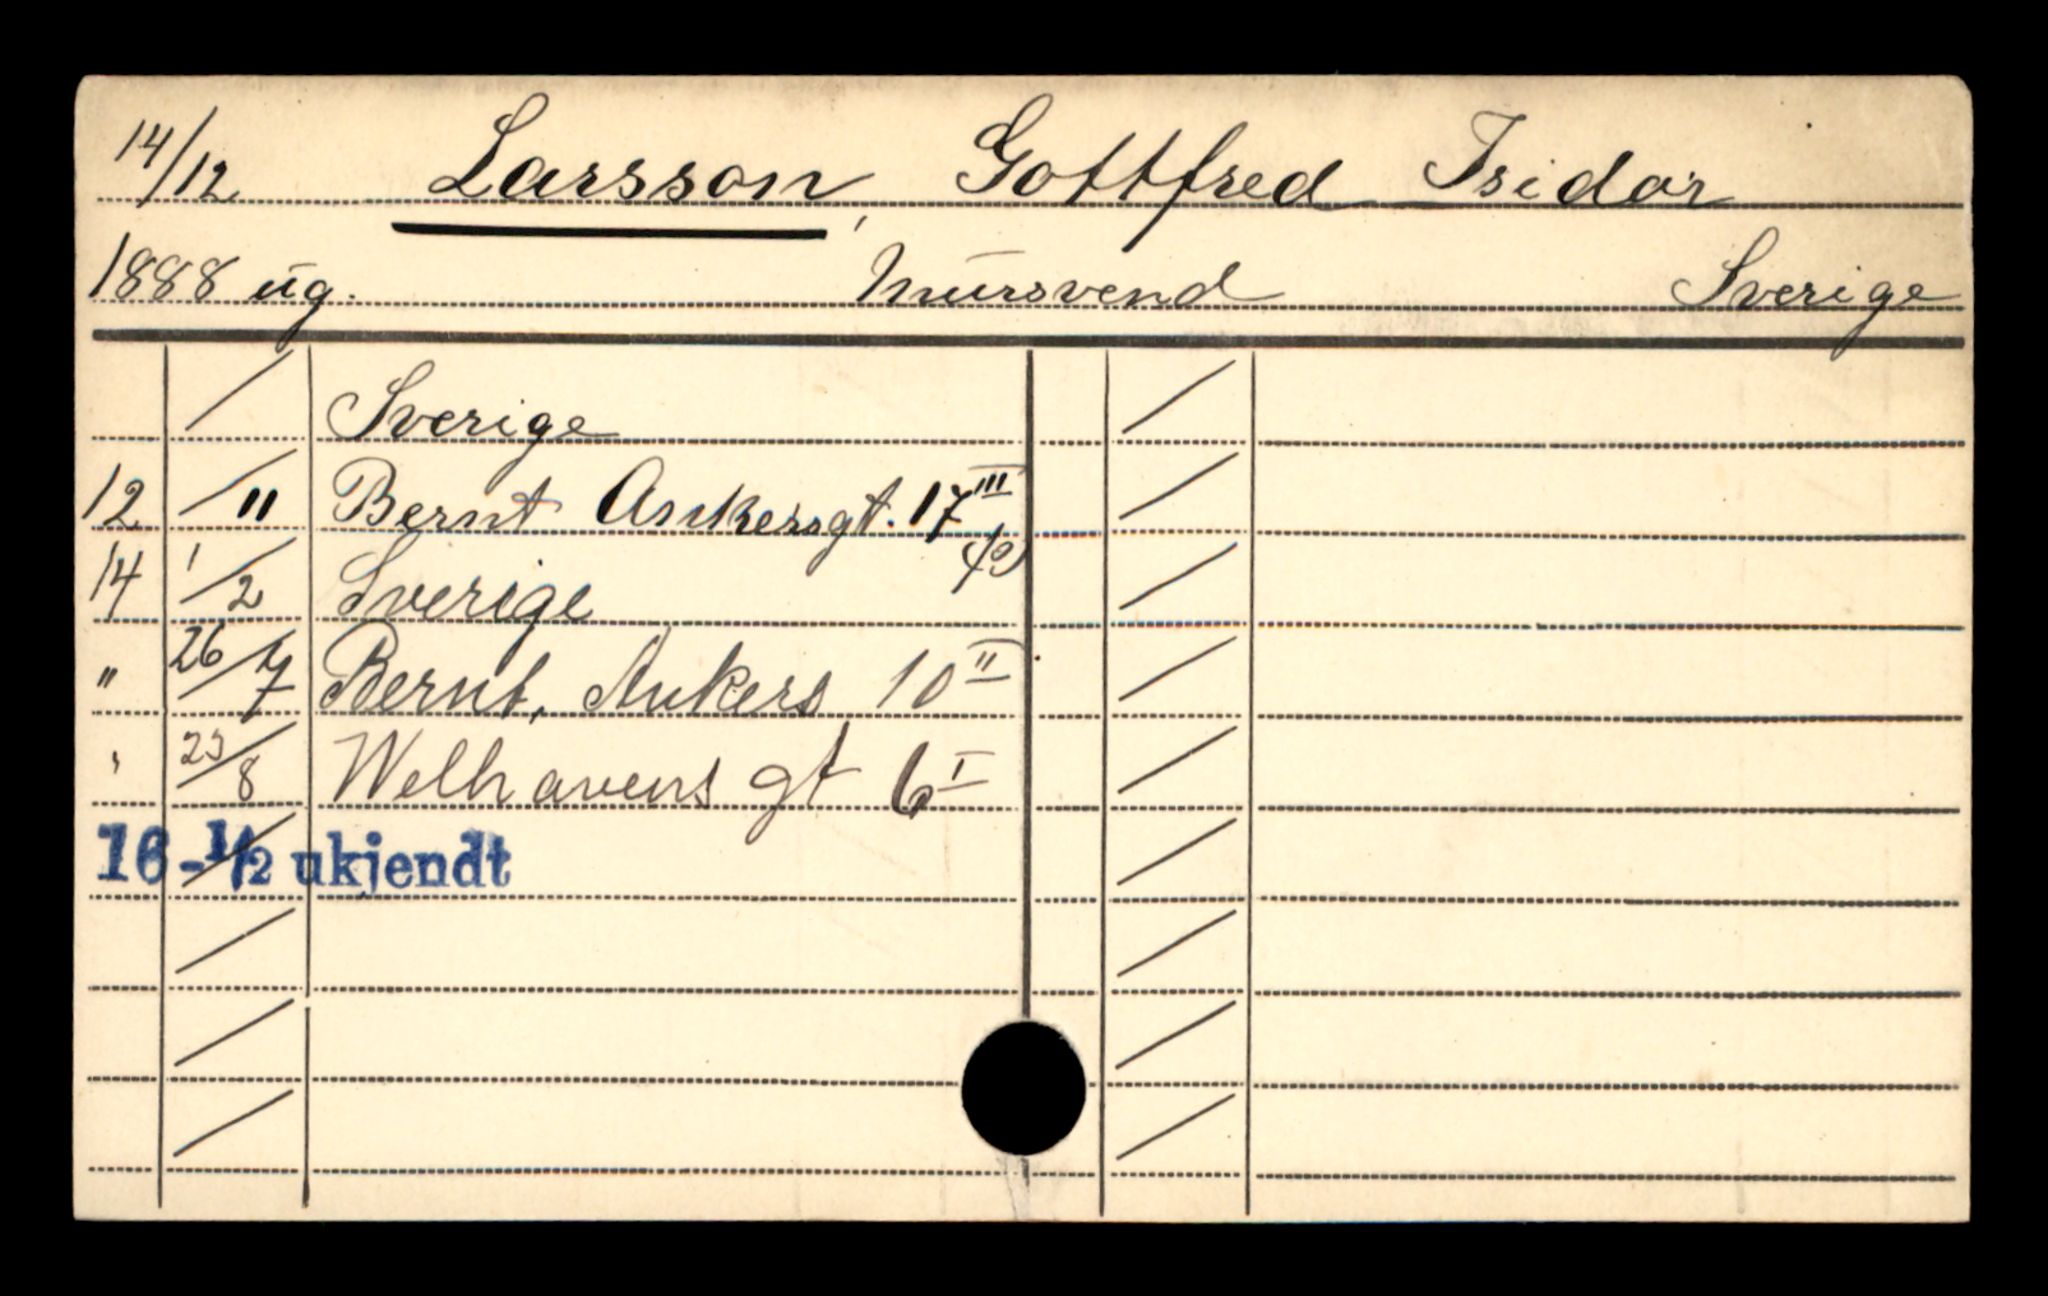 14/12 Larsson, Gottfred Isidor
1888 ug. Mursvend Sverige
/ Sverige
12 /11 Bernt Ankersgt. 17 III
14 1/2 Sverige
" 26/7 Bernt. Ankers 10 II
" 25/8 Welhavens gt 6 I
16 - 1/2 ukjendt